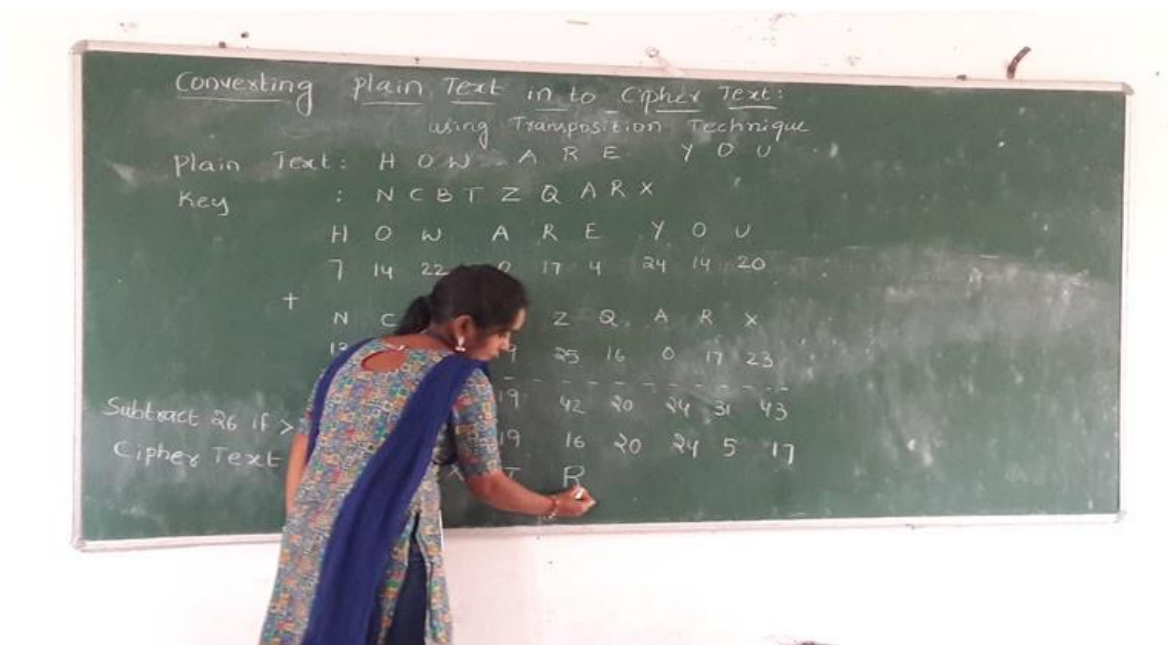 Converting Plain Text in to Cipher Text:
using Transposition Technique
Plain Text: H O W A R E Y O U
Key : N C B T Z Q A R X
H O W A R E Y O U
7 14 22 0 17 4 24 14 20
+
N C Z Q A R X
13 25 16 0 17 23
19 42 20 24 31 43
Subtract 26 if >
19 16 20 24 5 17
Cipher Text X T R